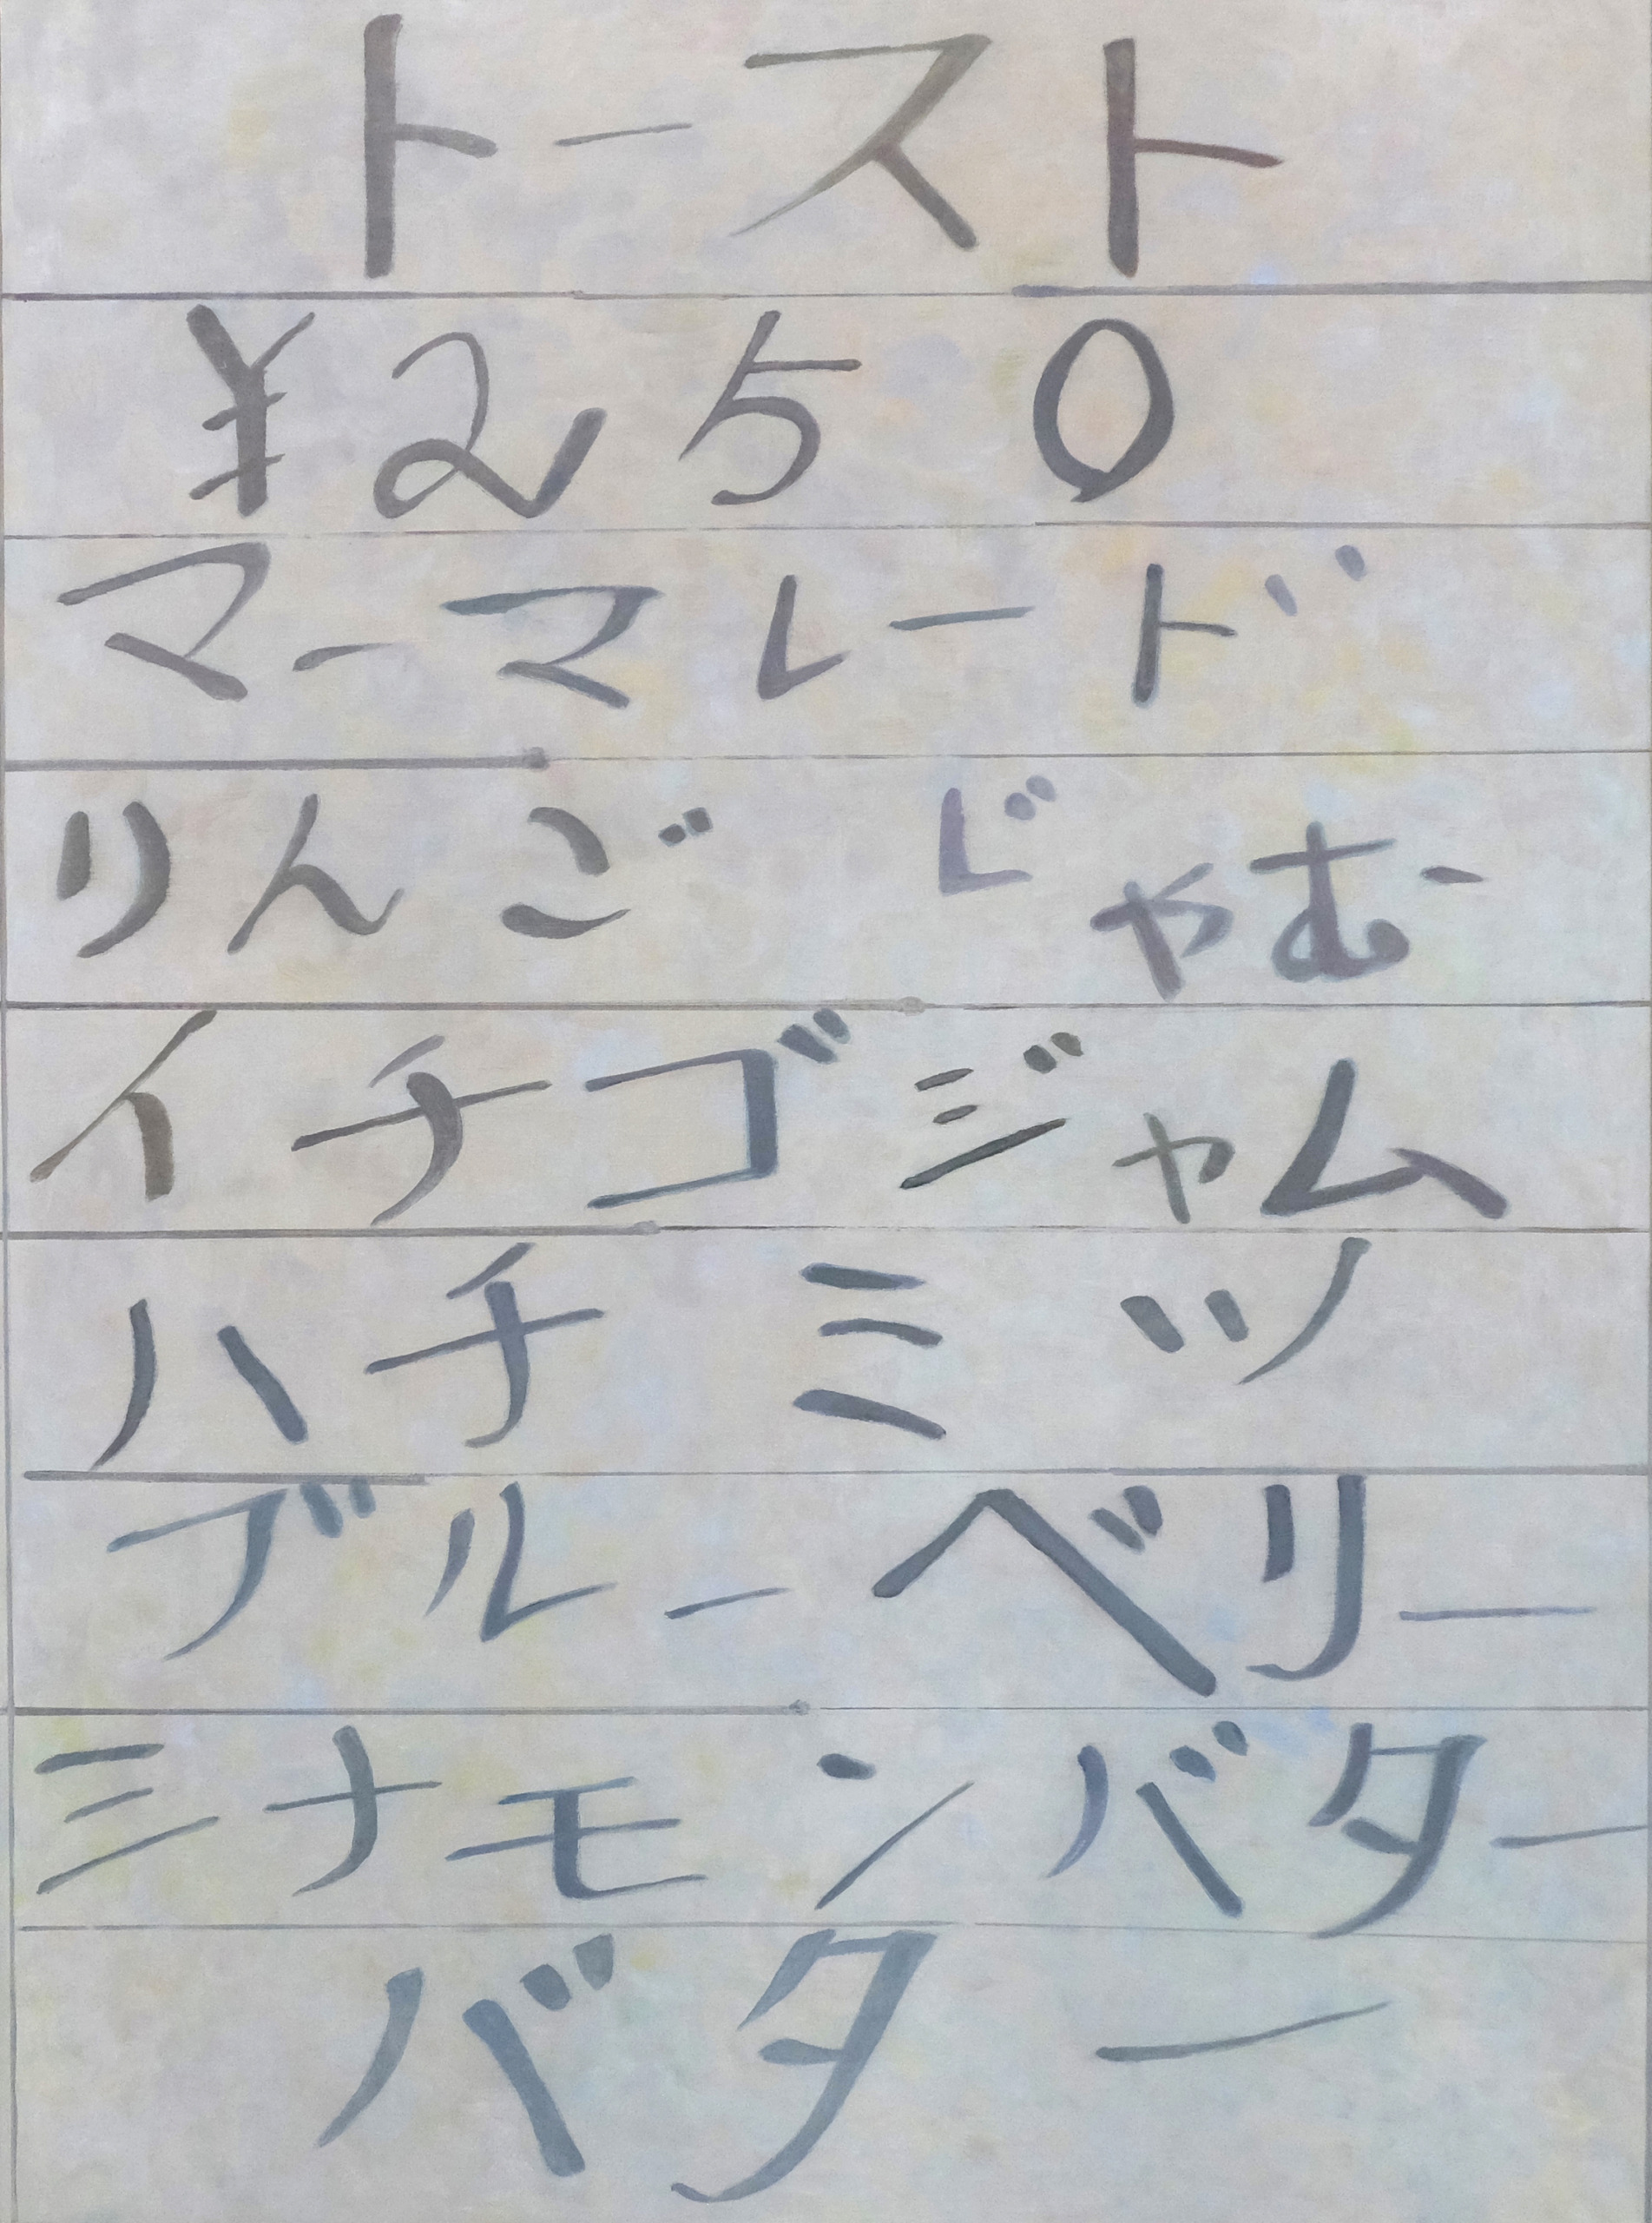 トースト
¥250
マーマレード
りんご じゃむ
イチゴジャム
ハチミツ
ブルーベリー
シナモンバター
バター